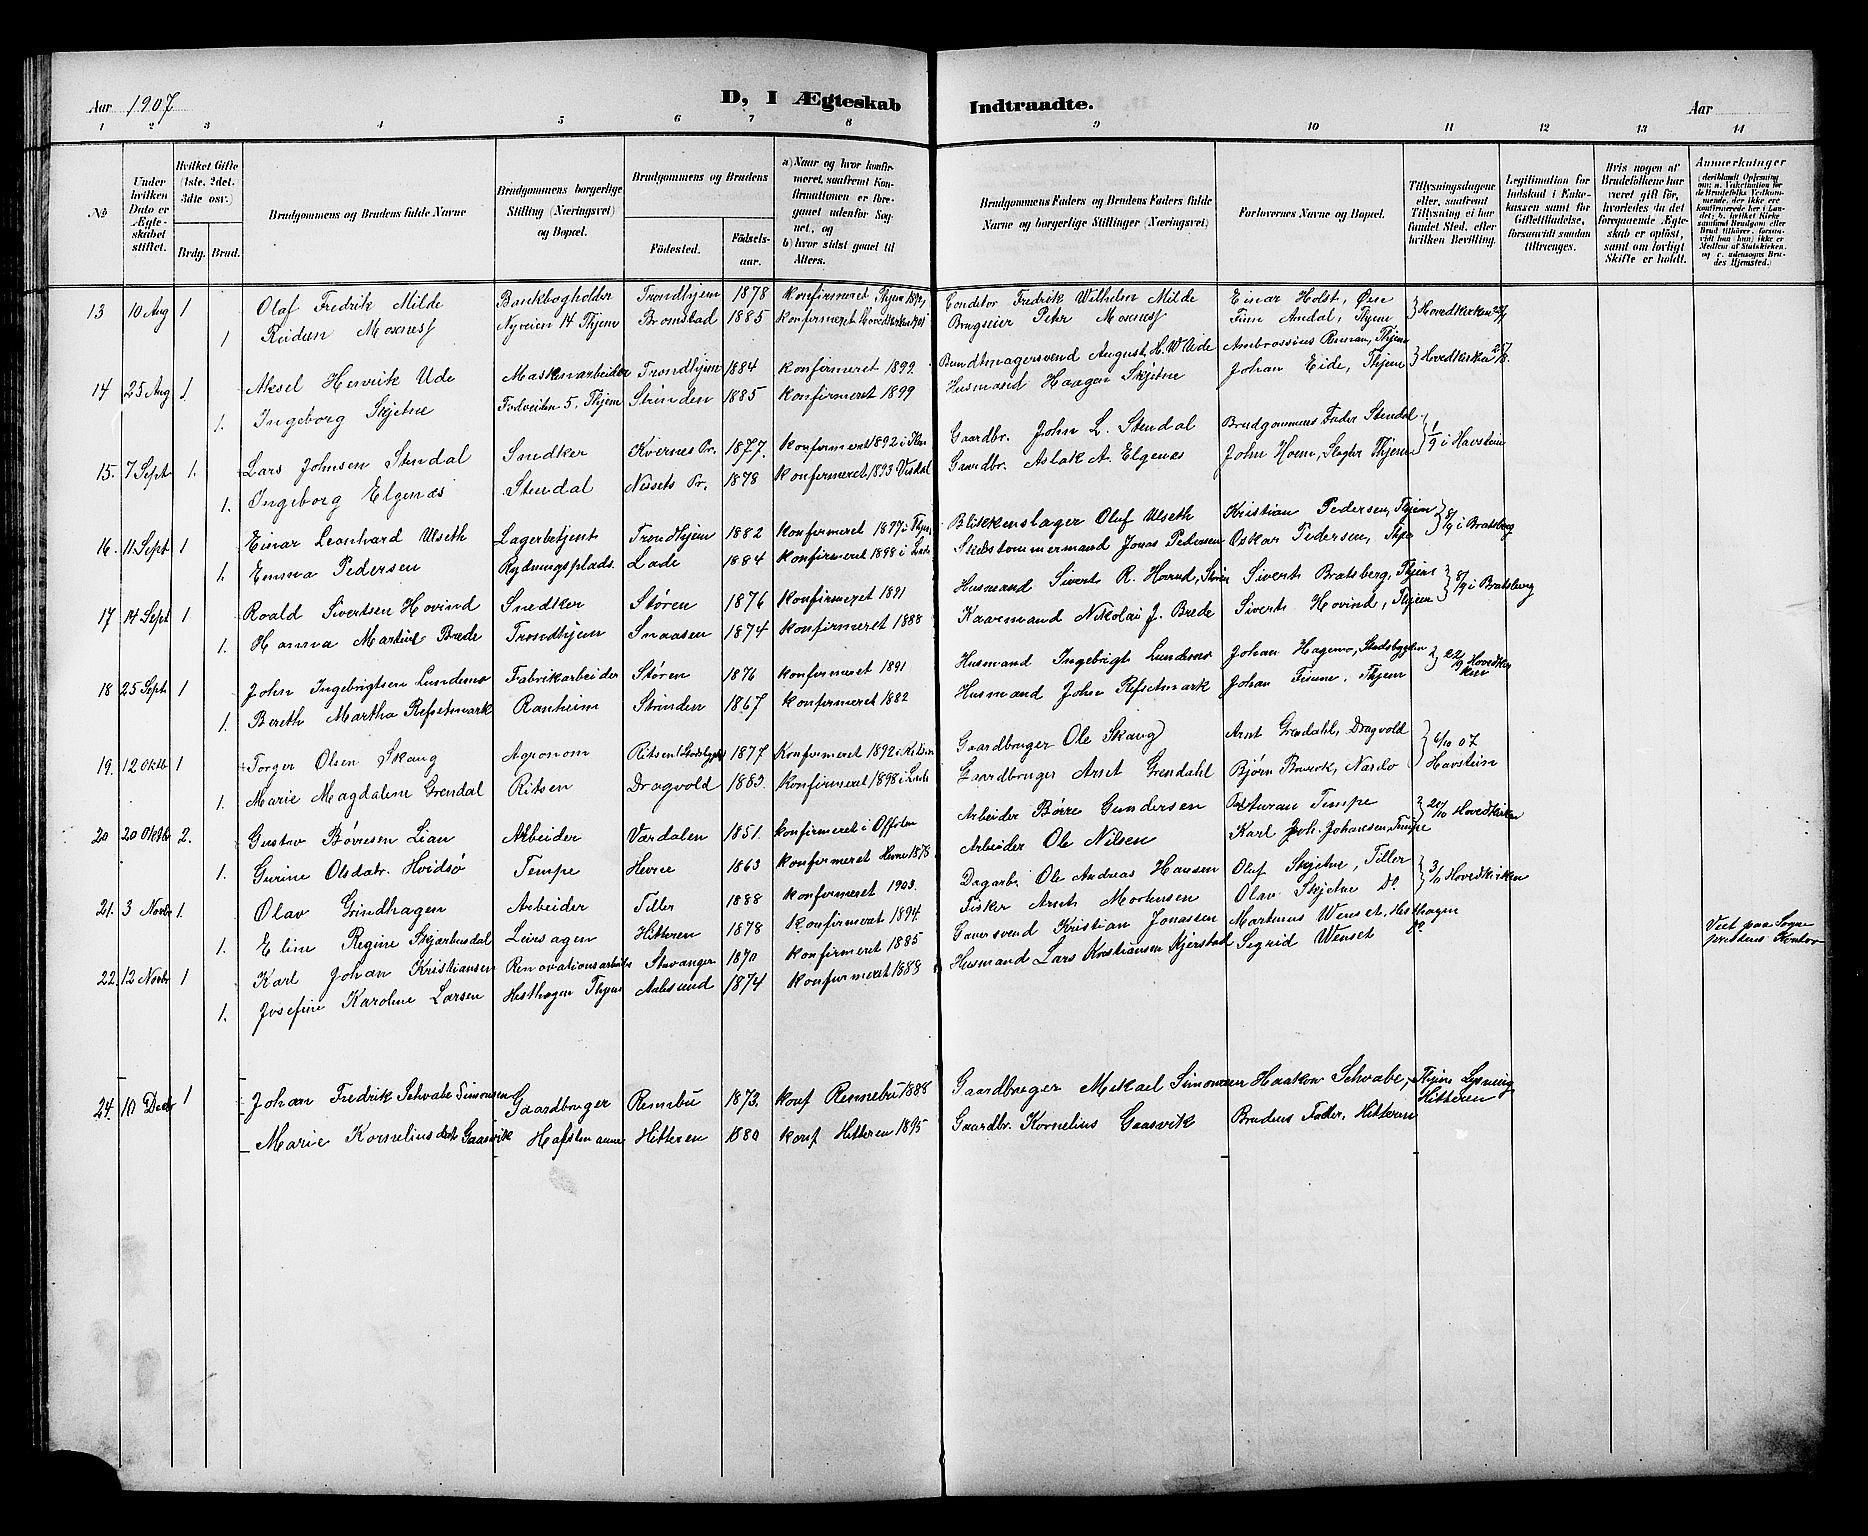 Aar 1907 D, I Ægteskab Indtraadte. Aar
1 2 3 4 5 6 7 8 9 10 11 12 13 14
No
Under hvilken Dato er Ægteskabet stiftet.
Hvilket Gifte (1ste. 2det. 3die osv.)
Brdg. Brud.
Brudgommens og Brudens fulde Navne
Brudgommens borgerlige Stilling (Næringsvei) og Bopæl.
Brudgommens og Brudens
Fødested. Fødselsaar.
a) Naar og hvor konfirmeret, saafremt Konfirmationen er foregaaet udenfor Sognet, og b) hvor sidst gaaet til Alters.
Brudgommens Faders og Brudens Faders fulde Navne og borgerlige Stillinger (Næringsvei)
Forlovernes Navne og Bopæl.
Tillysningsdagene eller, saafremt Tillysning ei har fundet Sted, efter hvilken Bevilling.
Legitimation for Indskud i Enkekassen samt for Giftetilladelse, forsaavidt saadan tiltrænges.
Hvis nogen af Brudefolkene har været gift før, hvorledes da det foregaaende Ægteskab er opløst, samt om lovligt Skifte er holdt.
Anmerkninger
13 10 Aug 1 Olaf Fredrik Milde Bankbogholder Trondhjem 1878 konfirmeret Thjem Conditor Fredrik Wilhelm Milde Einar Holst, Øen Hovedkirken
1 Reidun Moxness Nyveien 14 Thjem Bromstad 1885 konfirmeret Hovedkirken 1901 Brugseier Peter Moxness Finn Andal, Thjem
14 25 Aug 1 Aksel Henrik Ude Maskinarbeider Trondhjem 1884 konfirmeret 1899. Bundtmagersvend August H. W. Ude Ambrossius Thjem Hovedkirken
1. Ingeborg Skjetne 5, Thjem Strinden 1885 konfirmeret 1899 Husmand Haagen Skjetne Johan Eide, Thjem
15. 7 Sept 1. Lars Johnsen Stendal Snedker Kvernes Pr. 1877. konfirmeret 1892 i Gaardbr. John L. Stendal Brudgommens Fader Stendal 1/9 i Havstein
1. Ingeborg Elgenæs Stendal Nessets Pr. 1878 konfirmeret 1893 Gaardbr. Aslak A. Elgenes John Hoem, Thjem
16. 11 Sept 1 Einar Leonhard Ulseth Lagerbetjent Trondhjem 1882 konfirmeret 1897 i Thjem Blikkenslager Oluf Ulseth Kristian Pedersen, Thjem 8/9 i Bratsberg
1. Emma Pedersen Rydningsplads. Lade 1884 konfirmeret 1898 i Lade Jonas Pedersen Oskar Pedersen,
17 14 Sept 1 Roald Sivertsen Hovind Snedker Støren 1876 konfirmeret 1891 Husmand Sivert R. Hovind, Støren Sivert Bratsberg, Thjem 8/9 i Bratsberg
1. Hanna Martine Brede Trondhjem Snaasen 1874 konfirmeret 1888 Kaarmand Nikolai J. Brede Sivert Hovind, Thjem
18 25 Sept 1 John Ingebrigtsen Lundemo Fabrikarbeider Støren 1876 konfirmeret 1891 Husmand Ingebrigt Lundemo Johan Hagemo, Stadsbygden 22/9 Hovedkirken
1. Bereth Martha Refsetmark Ranheim Strinden 1867 konfirmeret 1882 Husmand John Refsetmark Johan Finne, Thjem
19. 12 Oktb 1 Torger Olsen Skaug Agronom Ritsen 1877 Konfirmeret 1892 i Gaardbruger Ole Skaug Arnt Grendahl, Dragvold 6/10 07 Havstein
1. Marie Magdaline Grendal Ritsen Dragvold 1883 konfirmeret 1898 i Lade Gaardbruger Arnt Grendahl Bjørn Nardo
20 20 Oktbr 2. Gustav Børresen Lian Arbeider Værdalen 1851. konfirmeret i Arbeider Børre Gundersen Tempe 20/10 Hovedkirken
1. Gurine Olsdatr. Hvidsø Tempe Hevne 1863 konfirmeret Hevne 1878 Arbeider Ole Nilsen Karl Joh. Johansen, Tempe
21. 3 Novbr 1. Olav Grindhagen Arbeider Tiller 1888 konfirmeret 1903. Dagarb. Ole Andreas Hansen Oluf Skjetne, Tiller 3/11 Hovedkirken
1. Eline Regine Leirsagen Hitteren 1878 konfirmeret 1894. Fisker Arnt Mortensen Olav Skjetne Do.
22. 12 Novbr 1 Karl Johan Kristiansen Renovationsarbeider Stavanger 1870 konfirmeret 1885 Garversvend Kristian Jonassen Martinus Wenset, Hesthagen Viet paa Sogneprestens Kontor
1. Josefine Karoline Larsen Hesthagen Thjem Aalesund 1874 konfirmeret 1889 Husmand Lars Kristiansen Kjerstad Sigrid Wenset Do
24. 10 Decbr 1 Johan Fredrik Schvabe Simonsen Gaardbruger Rennebu 1873. konf Rennebu 1888 Gaardbruger Mekael Simonsen Haakon Schvabe, Thjem Lysning Hitteren
Marie Korneliusdatr Gaasvik Hafsten Hitteren 1880 konf Hitteren 1895 Gaardbr. Kornelius Gaasvik Brudens Fader, Hitteren